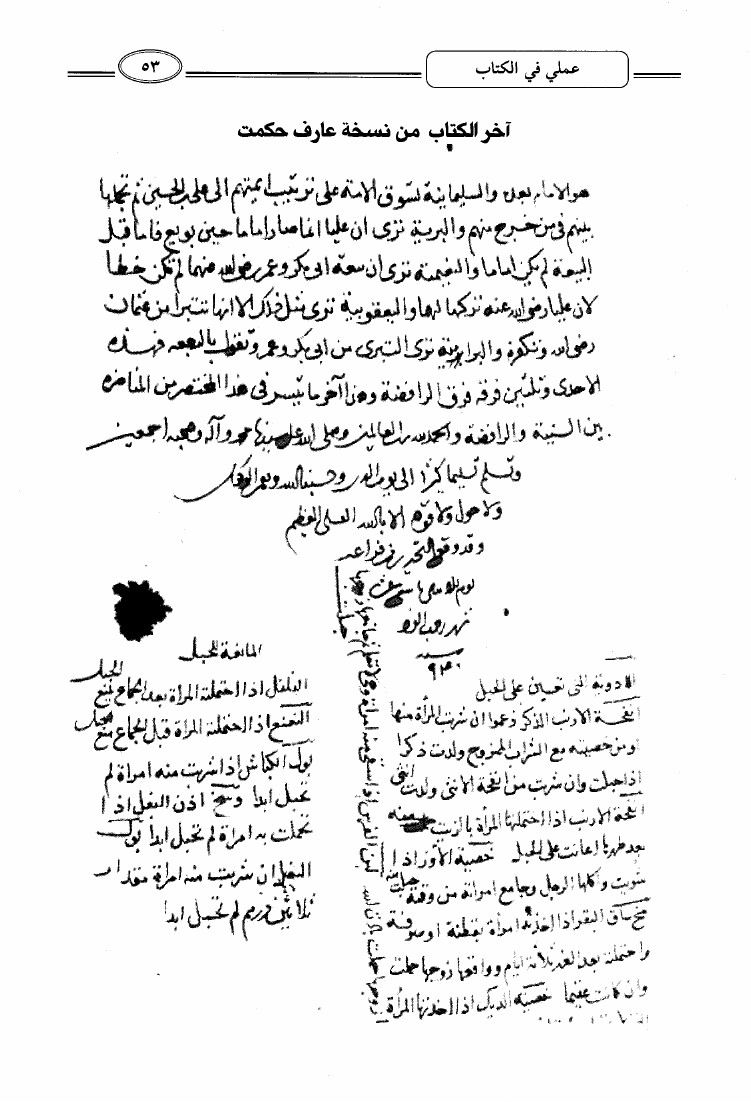 عملي في الكتاب
٥٣
آخر الكتاب من نسخة عارف حكمت
هو الامام بعده والسليمانية تسوق الامة على ترتيب ايمتهم الى على بن الحسين ثم تجعلها
بينهم فى من خرج منهم والبرية ترى ان عليا انما صار اماما حين بويع فاما قبل
البيعة لم يكن اماما ترى ان بيعة ابى بكر وعمر رضى الله عنهما لم تكن خطا
لان عليا رضى الله عنه تركها لهما واليعقوبية ترى مثل ذلك الا انها تتبرا من عثمان
رضى الله وتكفره ترى التبرى من ابى بكر وعمر وتقول بالرجعه فهذه
الاحدى وثلثين فرقه فرق الرافضة وهذا آخر ما تيسر فى هذا المختصر من المناظره
بين السنية والرافضة والحمد لله رب العالمين وصلى الله على سيدنا محمد وآله وصحبه اجمعين
وسلم تسليما كثيرا الى يوم الدين وحسبنا الله ونعم الوكيل
ولا حول ولا قوة الا بالله العلى العظيم
وقد وقع
يوم
شهر رجب
سنه
٩٣٠
الادوية التى تعين على الحبل
انفحة الارنب الذكر زعموا ان شربت المرأة منها
او من خصيته مع الشراب الممزوج ولدت ذكرا
اذا حبلت وان شربت من انفحة الانثى ولدت انثى
انفحة الارنب اذا احتملتها المرأة بالزيت
بعد طهرها اعانت على الحبل خصية الاوز اذا
شويت واكلها الرجل وجامع امراته من وقته حبلت
مخ ساق البقر اذا اخذته امرأة بقطنة او صوفة
واحتملته بعد ثلاثة ايام وواقعها زوجها حملت
وان كانت عقيما خصية الديك اذا اخذتها المرأة
لبن الفرس اذا سقى منه امرأة
زوجها حملت باذن الله
المانعة للحبل
الفلفل اذا احتملته المرأة بعد الجماع منع الحبل
النعنع اذا احتملته المرأة قبل الجماع منع الحبل
بول الكباش اذا شربت منه امراة لم
تحبل ابدا وسخ اذن البغل اذا
تحملت به امراة لم تحبل ابدا بول
البغل ان شربت منه امراة مقدار
ثلاثين درهم لم تحبل ابدا